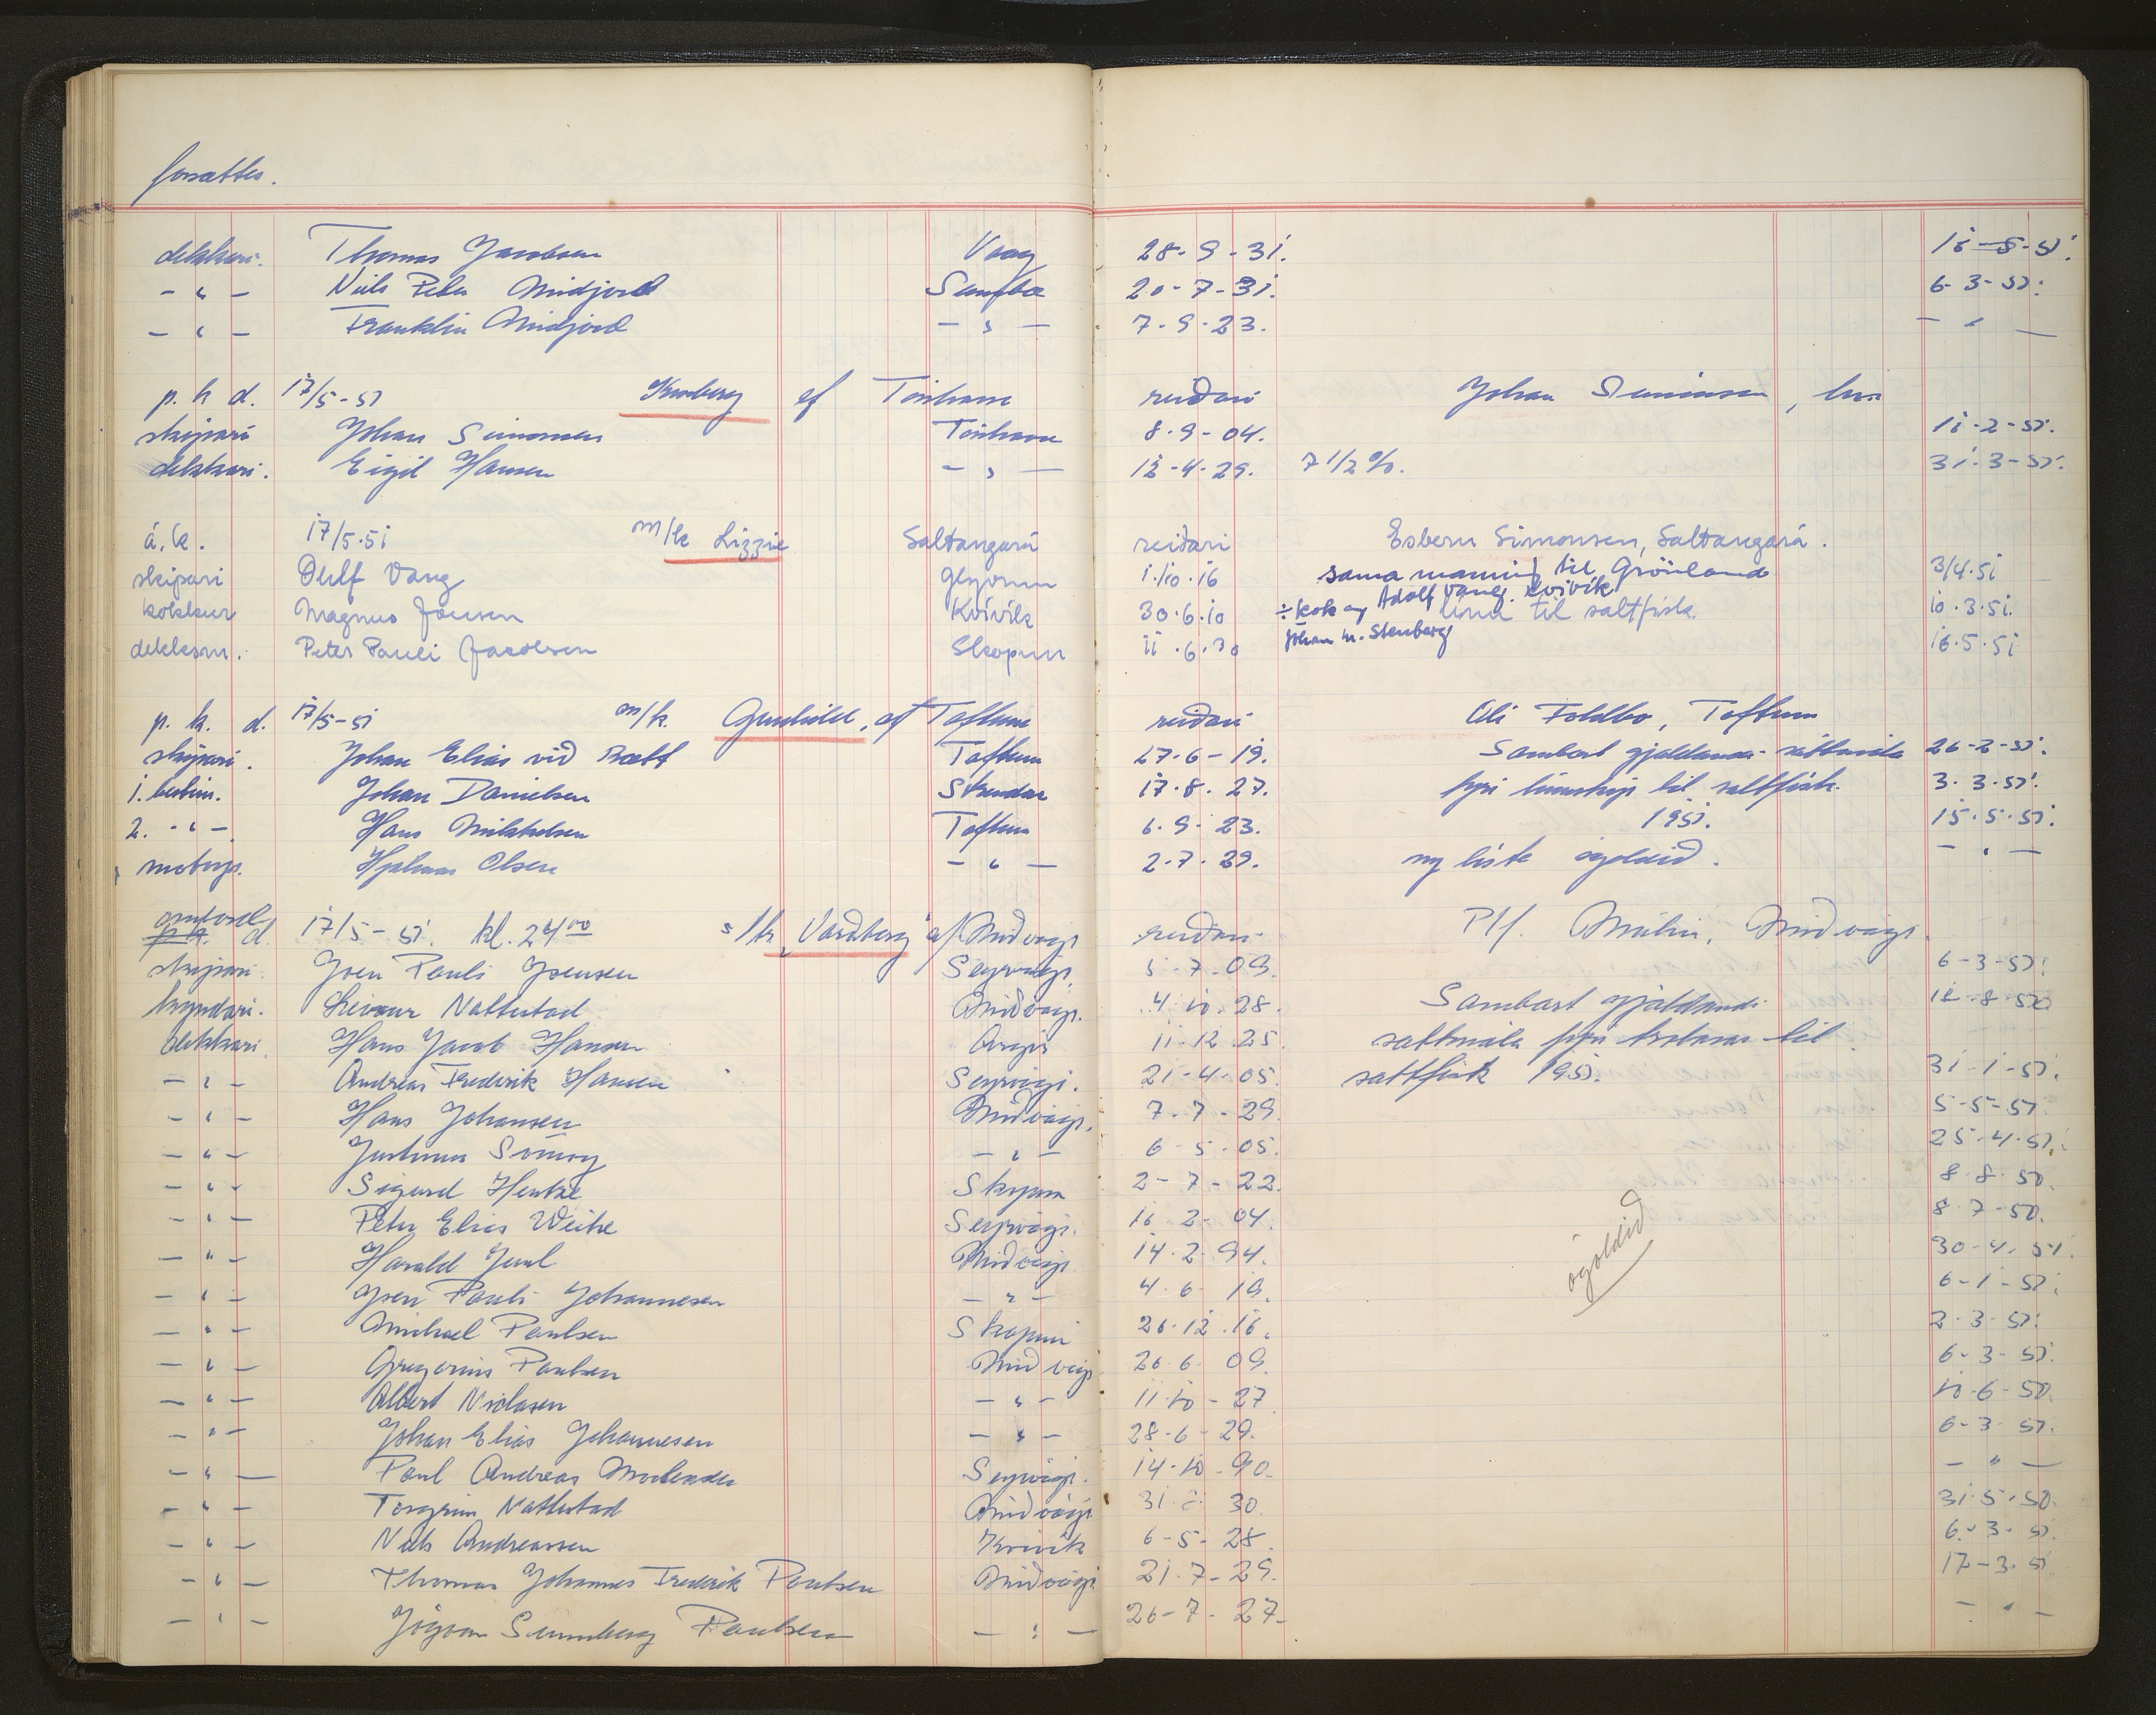 forsættes.
dekkari. Thomas Jacobsen Vaag 28-9-31. 16-5-51.
- " - Niels Peter Midjord Sumbø 20-7-31. 6-3-51.
- " - Franklin Midjord - " - 7-9-23. - " -
p. k d. 17/5-51 af Tórshavn reiðari Johan Simonsen,
skipari Johan Simonsen Tórshavn 8-9-04. 16-2-51.
dekkari. Eigil Hansen - " - 12-4-29. 7 1/2 %. 31-3-51.
á.k. 17/5.51 m/k Lizzie Saltangará reiðari Esbern Simonsen, Saltangará.
skipari Vang Glyvrum 1.10.16 sama manning til Grönland 3/4.51
kokkur Magnus Joensen Kvívík 30.6.10 ÷ kok og Adolf Vang. Kvivík línu til saltfisk. 10.3.51.
dekksm. Peter Pauli Jacobsen Skopun 11.6.30 Johan M. Stenberg 16.5.51
p. k. d. 17/5-51 m/k. Gunhild, af Toftum reiðari Oli Foldbo, Toftum
skipari. Johan Elias við Brátt Toftum 27-6-19. Sambært gjaldandi sáttmála 26-2-51.
1. bestim. Johan Danielsen Strendur 17.8.27. fyri línuskip til saltfisk. 3.3.51.
2. - " - Hans Mikkelsen Toftum 6.9.23. 1951. 15.5.51.
motorp. Hjalmar Olsen - " - 2.7.29. ny liste ógoldið. - " -
d. 17/5-51. kl. 24 00 s/k "Varðberg" af Miðvági reiðari P/f. Múlin, Miðvági.
skipari Joen Pauli Joensen Sørvági. 5-7-09. 6-3-51.
kyndari. Leivur Nattestad Miðvági. 4.10.28. Sambært gjaldandi 12-8-50
dekkari. Hans Jacob Hansen Argir 11-12 25. sáttmála fyri trolarar til
- " - Andreas Frederik Hansen Sørvági. 21-4-05. saltfisk 1951. 31-1-51.
- " - Hans Johansen Miðvági. 7.7-29. 5-5-51.
- " - Justinus - " - 6-5-05. 25-4-51.
- " - Sigurd Hentze Skopun 2-7-22. 8-8-50.
- " - Peter Elias Weihe Sørvági. 16 2-04. 8-7-50.
- " - Harald Juul Miðvági 14.2.94. ógoldið 30-4-51.
- " - Joen Pauli Johannesen - " - 4.6.19. 6-1-51.
- " - Michael Poulsen Skopun 26.12.16. 2-3-51.
- " - Gregorius Poulsen Miðvági 26.6.09. 6-3-51.
- " - Albert Niclasen - " - 11.10-27 10-6-50.
- " - Johan Elias Johannesen - " - 28-6-29. 6-3-51.
- " - Poul Andreas Mortensen Sørvági. 14.10.90. - " -
- " - Torgrim Nattestad Miðvági 31. 30. 31.5.50.
- " - Niels Andreassen Kvívík 6-5-28. 6-3-51.
- " - Thomas Johannes Frederik Poulsen Miðvági 21.7-29. 17-3-51
- " - Jógvan Sumberg Poulsen - " - 26-7-27. - " -